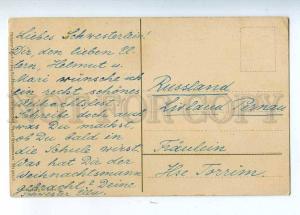 Liebes Schwesterlein!
Dir, den lieben El-
tern, Helmut u.
Mari wünsche ich
ein recht schönes
Weihnachtsfest.
Schreibe doch auch
was Du machst,
ob Du bald in
die Schule wirst.
Was hat Dir der
Weihnachtsmann
gebracht? Deine
Schwester
Russland
Livland Pernau
Fräulein
Hse Torrim.